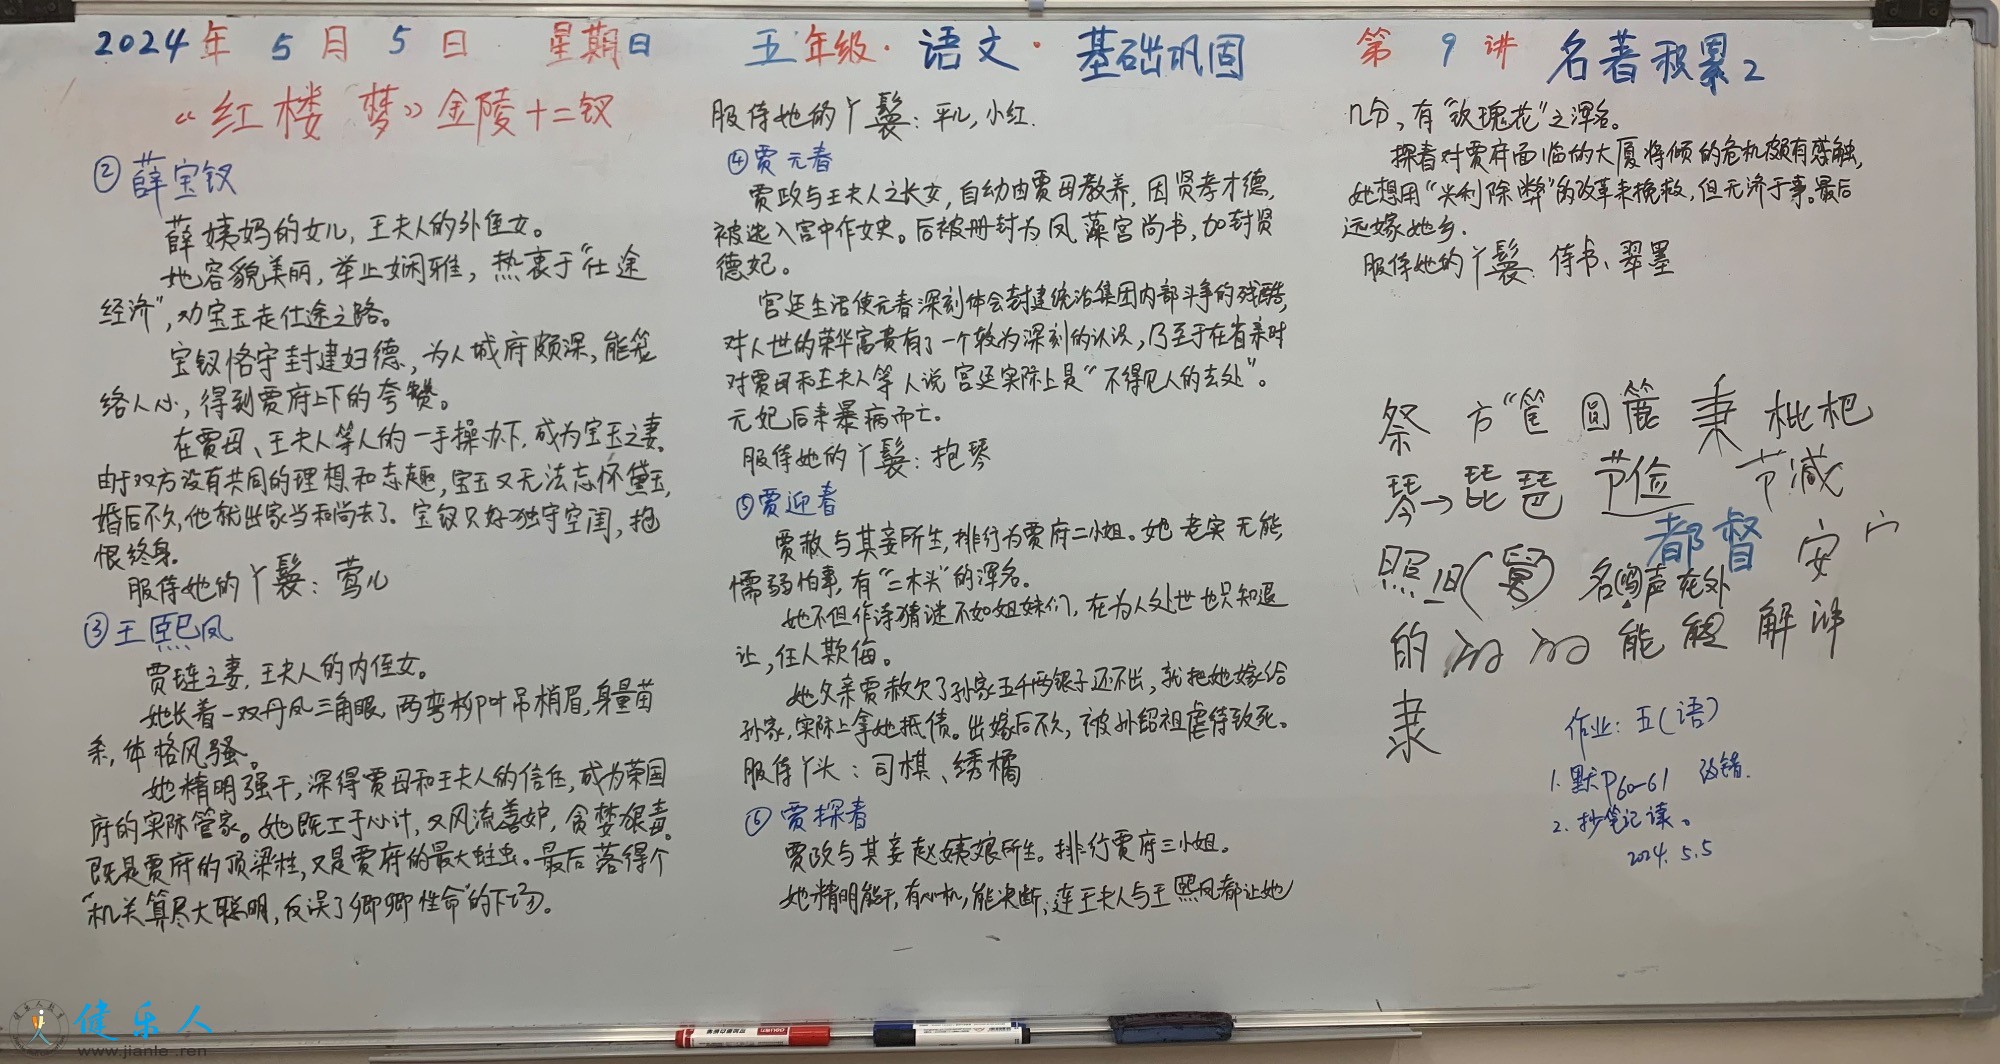 2024年5月5日 星期日 五年级·语文·基础巩固 第9讲 名著积累2
“红楼梦”金陵十二钗
②薛宝钗
薛姨妈的女儿,王夫人的外侄女。
她容貌美丽,举止娴雅,热衷于“仕途
经济”,劝宝玉走仕途之路。
宝钗恪守封建妇德,为人城府颇深,能笼
络人心,得到贾府上下的夸赞。
在贾母、王夫人等人的一手操办下,成为宝玉之妻。
由于双方没有共同的理想和志趣,宝玉又无法忘怀黛玉,
婚后不久,他就出家当和尚去了。宝钗只好独守空闺,抱
恨终身。
服侍她的丫鬟:莺儿
③王熙凤
贾琏之妻,王夫人的内侄女。
她长着一双丹凤三角眼,两弯柳叶吊梢眉,身量苗
条,体格风骚。
她精明强干,深得贾母和王夫人的信任,成为荣国
府的实际管家。她既工于心计,又风流善妒,贪婪狠毒。
既是贾府的顶梁柱,又是贾府的最大蛀虫。最后落得个
“机关算尽太聪明,反误了卿卿性命”的下场。
服侍她的丫鬟:平儿,小红.
④贾元春
贾政与王夫人之长女,自幼由贾母教养,因贤孝才德,
被选入宫中作女史。后被册封为凤藻宫尚书,加封贤
德妃。
宫廷生活使元春深刻体会封建统治集团内部斗争的残酷,
对人世的荣华富贵有了一个较为深刻的认识,乃至于在省亲时
对贾母和王夫人等人说宫廷实际上是“不得见人的去处”。
元妃后来暴病而亡。
服侍她的丫鬟:抱琴
⑤贾迎春
贾赦与其妾所生,排行为贾府二小姐。她老实无能,
懦弱怕事,有“二木头”的浑名。
她不但作诗猜谜不如姐妹们,在为人处世也只知退
让,任人欺侮。
她父亲贾赦欠了孙家五千两银子还不出,就把她嫁给
孙家,实际上拿她抵债。出嫁后不久,被孙绍祖虐待致死。
服侍丫头:司棋、绣橘
⑥贾探春
贾政与其妾赵姨娘所生。排行贾府三小姐。
她精明能干,有心机,能决断,连王夫人与王熙凤都让她
几分,有“玫瑰花”之浑名。
探春对贾府面临的大厦将倾的危机颇有感触,
她想用“兴利除弊”的改革来挽救,但无济于事。最后
远嫁她乡.
服侍她的丫鬟:侍书、翠墨
祭 方“筐 圆篚 秉 枇杷
琴→琵琶 节俭 节减
都督 安 宀
照旧(舊) 名(鸣)声在外
的 能 解 讲
隶
作业:五(语)
1.默P60-61 改错.
2.抄笔记读。
2024.5.5
健乐人
www.jianle.ren